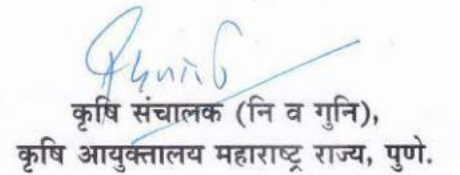 कृषि संचालक (नि व गुनि),
कृषि आयुक्तालय महाराष्ट्र राज्य, पुणे.